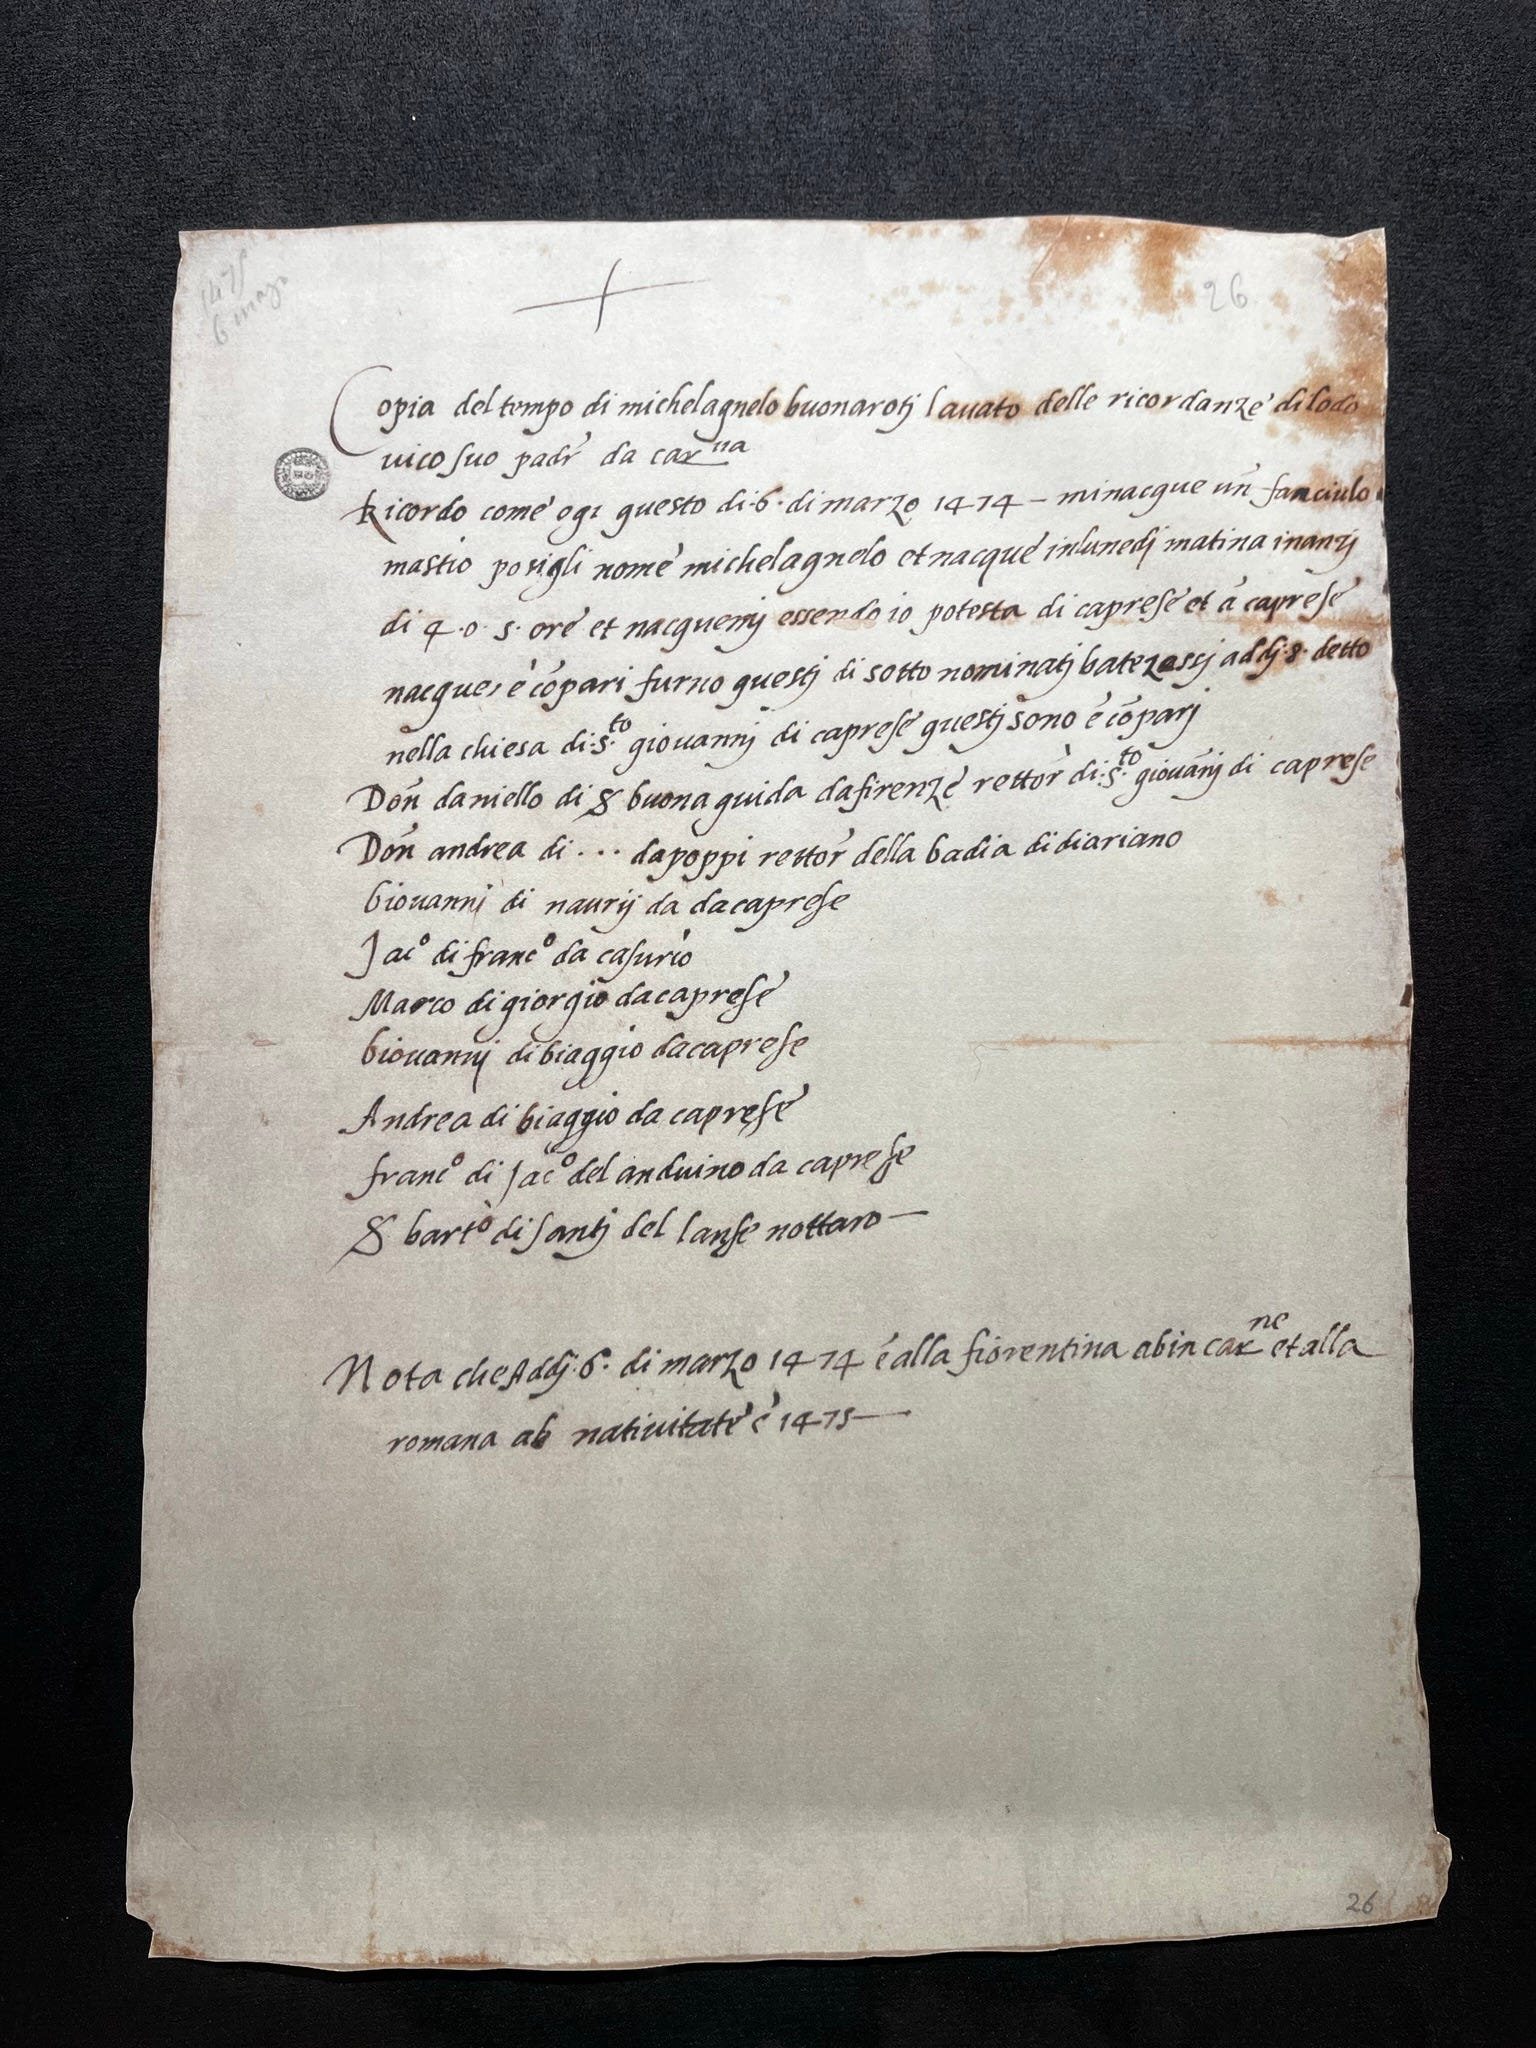 1475
6 marzo
26
Copia del tempo di michelagnelo buonarotj lauato delle ricordanze di lodo
uico suo padr̄ da carna
Ricordo come ogi questo di .6. di marzo 1474 — minacque un̄ fanciulo
mastio posigli nome michelagnelo et nacque inlunedj matina inanzj
di 4. o. 5. ore et nacquemj essendo io potesta di caprese et à caprese
nacque, è cōpari furno questj di sotto nominatj batezossj addj .8. detto
nella chiesa di .s.to giouannj di caprese questj sono è cōparj
Don̄ daniello di S buonaguida dafirenze rettor̄ di .s.to giouānj di caprese
Don̄ andrea di ... dapoppi rettor̄ della badia didiariano
Giouannj di naurij da dacaprese
Jaco di franco da casurio
Marco di giorgio dacaprese
Giouannj di biaggio dacaprese
Andrea di biaggio da caprese
franco di Jaco del anduino da caprese
S barto di santj del lanse nottaro —
Nota che Addj .6. di marzo 1474 è alla fiorentina ab in carne et alla
romana ab natiuitate è 1475 —
26